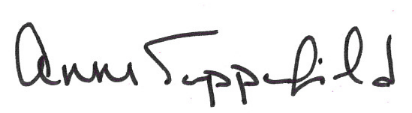 Anne Topperfield